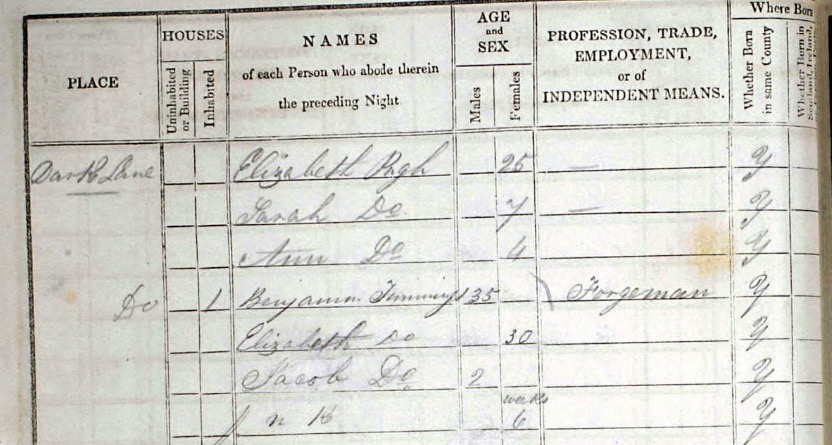 PLACE HOUSES Uninhabited or Building Inhabited NAMES of each Person who abode therein the preceding Night AGE and SEX Males Females PROFESSION, TRADE, EMPLOYMENT, or of INDEPENDENT MEANS. Where Born Whether Born in same County Whether Born in Scotland, Ireland,
Dark Lane Elizabeth Pugh 25 — Y
Sarah Do 7 — Y
Ann Do 4 Y
Do 1 Benjamin Jennings 35 Forgeman Y
Elizabeth Do 30 Y
Jacob Do 2 Y
n k weeks 6 Y